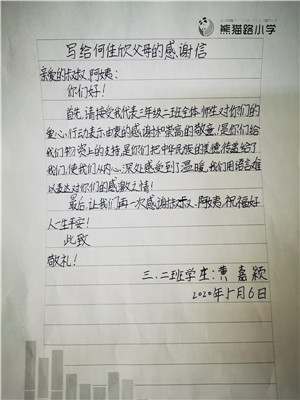 熊猫路小学
写给何佳欣父母的感谢信
亲爱的叔叔、阿姨:
你们好!
首先,请接受我代表三年级二班全体师生对你们的
爱心行动表示由衷的感谢和崇高的敬意!是你们给
我们物资上的支持,是你们把中华民族的美德传递给了
我们,使我们从内心深处感受到了温暖,我们用语言难
以表达对你们的感激之情!
最后,让我们再一次感谢叔叔、阿姨,祝福好
人一生平安!
此致
敬礼!
三、二班学生:黄嘉颖
2020年5月6日